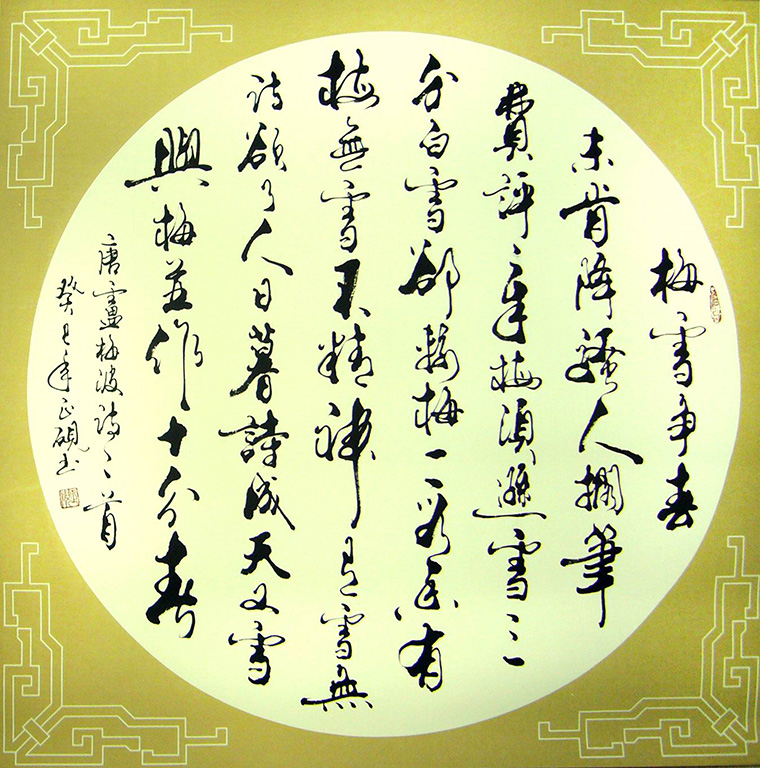 梅雪争春
未肯降骚人搁筆
費評章梅須遜雪三
分白雪卻輸梅一段香有
梅無雪不精神有雪無
詩俗了人日暮詩成天又雪
與梅並作十分春
唐盧梅坡詩二首
癸巳年正硯书